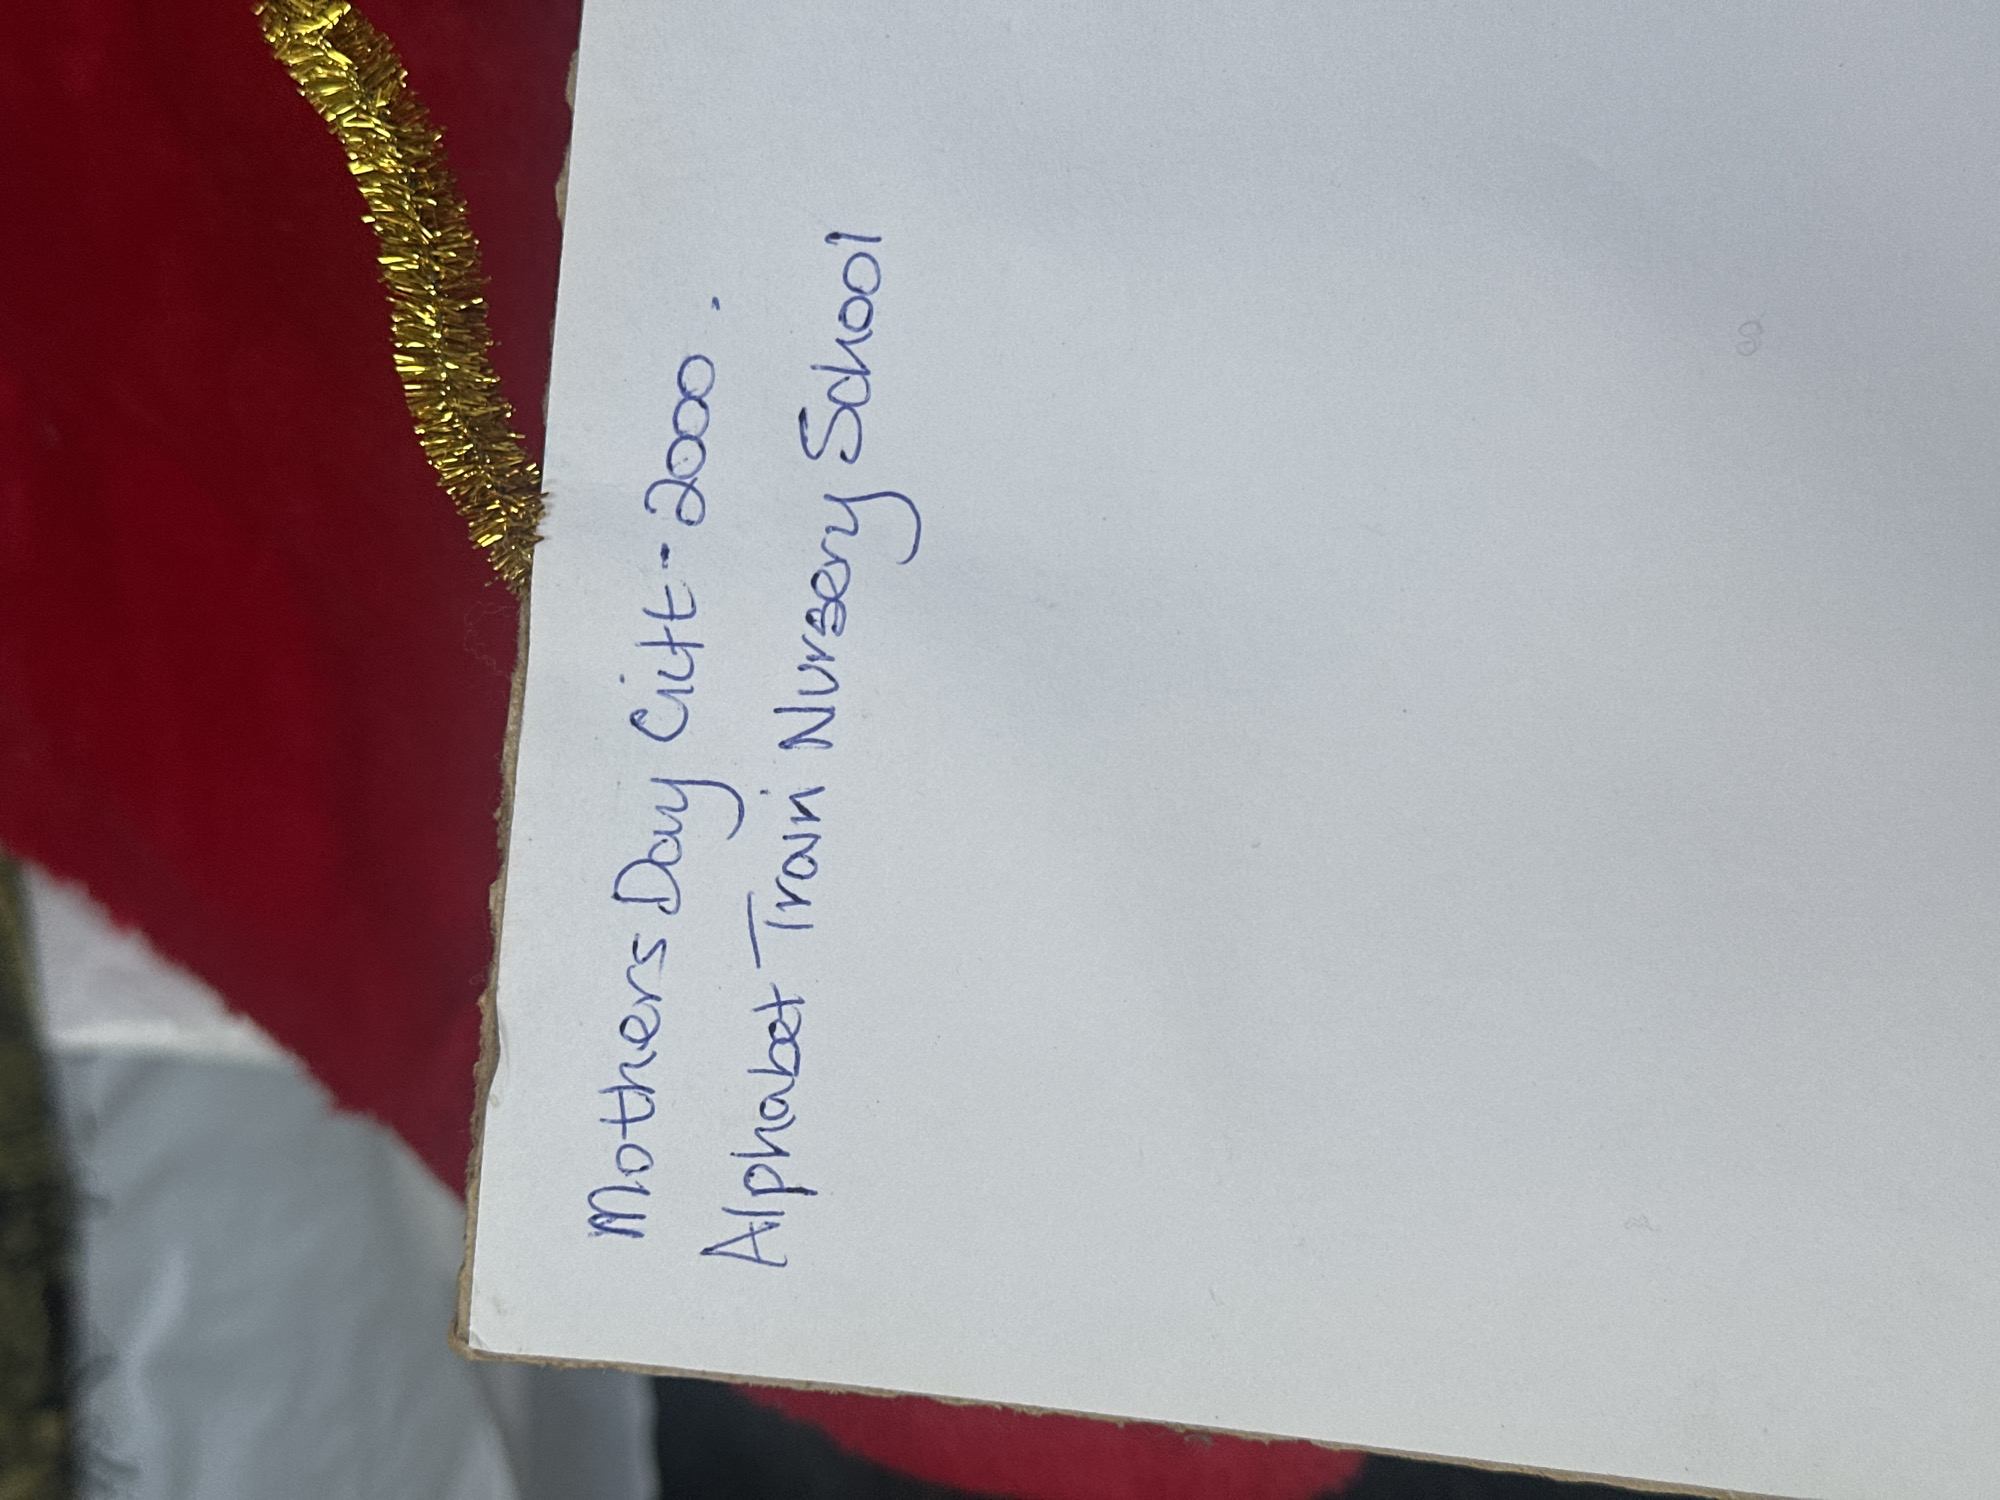 Mothers Day Gift - 2000.
Alphabet Train Nursery School